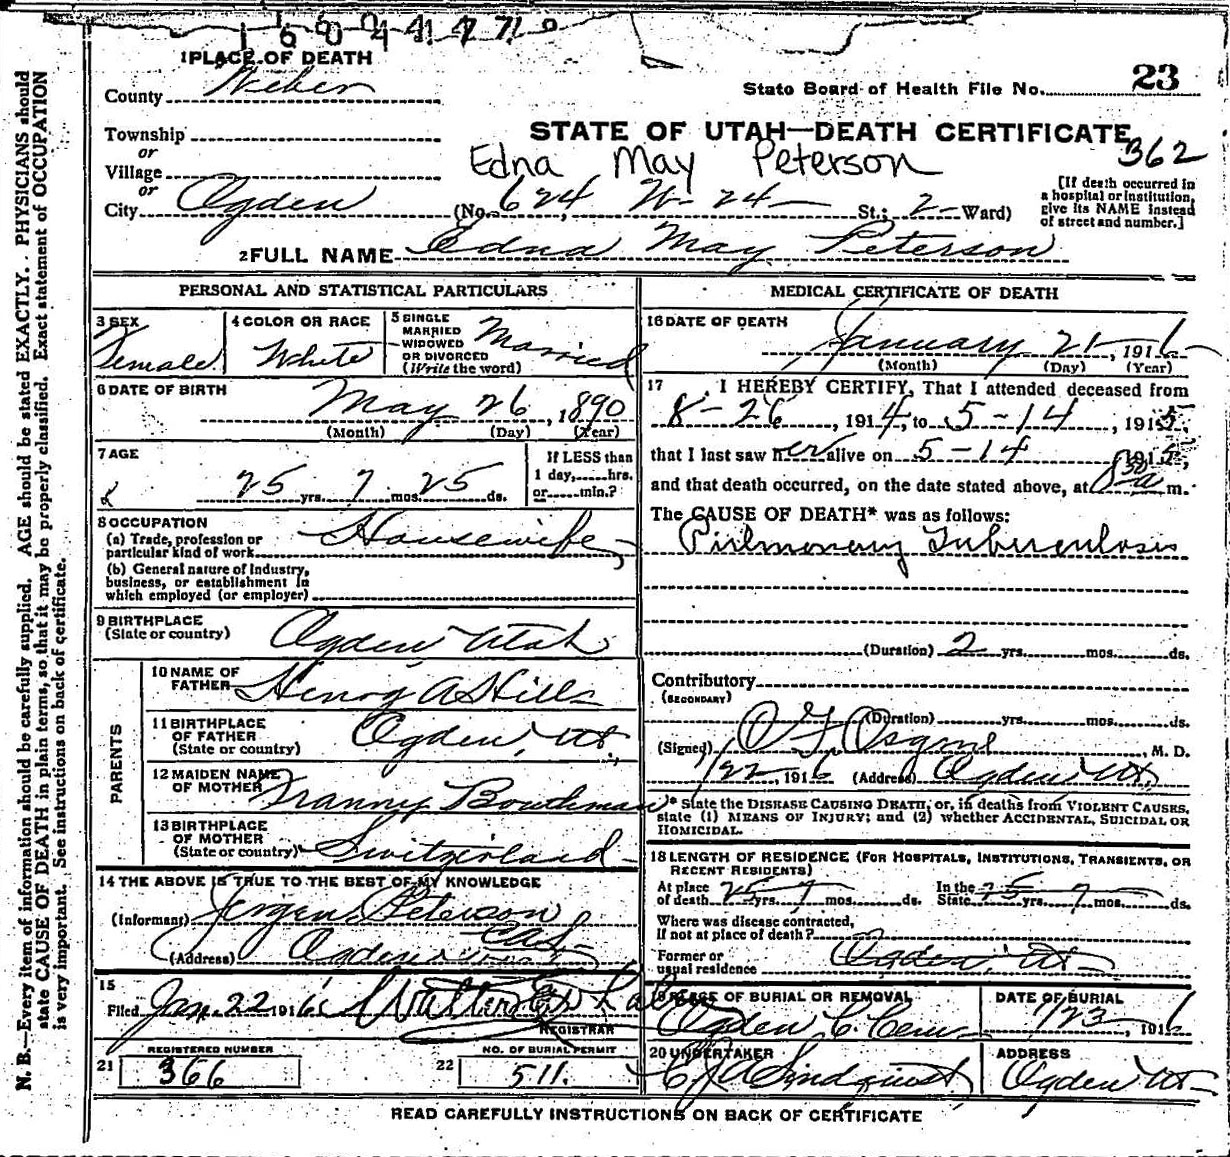 1 6 0 4 4 4 7 7 0
1 PLACE OF DEATH
County Weber
State Board of Health File No. 23
Township
or
Village
or
City Ogden
STATE OF UTAH—DEATH CERTIFICATE
362
Edna May Peterson
(No. 624, W- 24 — St.; 2- Ward)
[If death occurred in
a hospital or institution,
give its NAME instead
of street and number.]
2 FULL NAME Edna May Peterson
PERSONAL AND STATISTICAL PARTICULARS
3 SEX
Female
4 COLOR OR RACE
White
5 SINGLE
MARRIED
WIDOWED
OR DIVORCED
(Write the word)
Married
6 DATE OF BIRTH
May 26, 1890
(Month) (Day) (Year)
7 AGE
25 yrs. 7 mos. 25 ds.
If LESS than
1 day, hrs.
or min.?
8 OCCUPATION
(a) Trade, profession or
particular kind of work Housewife
(b) General nature of Industry,
business, or establishment in
which employed (or employer)
9 BIRTHPLACE
(State or country) Ogden Utah
PARENTS
10 NAME OF
FATHER Henry A Hill
11 BIRTHPLACE
OF FATHER
(State or country) Ogden, Ut.
12 MAIDEN NAME
OF MOTHER Franny
13 BIRTHPLACE
OF MOTHER
(State or country) Switzerland
14 THE ABOVE IS TRUE TO THE BEST OF MY KNOWLEDGE
(Informant) Jergen Peterson
(Address) Ogden
15
Filed Jan. 22 1916
REGISTRAR
REGISTERED NUMBER
21 366
NO. OF BURIAL PERMIT
22 511.
MEDICAL CERTIFICATE OF DEATH
16 DATE OF DEATH
January 21, 1916
(Month) (Day) (Year)
17 I HEREBY CERTIFY, That I attended deceased from
8-26, 1914, to 5-14, 1915,
that I last saw her alive on 5-14 1915,
and that death occurred, on the date stated above, at 8 30 a m.
The CAUSE OF DEATH* was as follows:
Pulmonary Tuberculosis
(Duration) 2 yrs. mos. ds.
Contributory
(SECONDARY)
(Duration) yrs. mos. ds.
(Signed) , M. D.
1/22, 1916 (Address) Ogden Ut.
* State the DISEASE CAUSING DEATH, or, in deaths from VIOLENT CAUSES,
state (1) MEANS OF INJURY; and (2) whether ACCIDENTAL, SUICIDAL OR
HOMICIDAL.
18 LENGTH OF RESIDENCE (FOR HOSPITALS, INSTITUTIONS, TRANSIENTS, OR
RECENT RESIDENTS)
At place
of death 25 yrs. 7 mos. ds.
In the
State 25 yrs. 7 mos. ds.
Where was disease contracted,
If not at place of death?
Former or
usual residence Ogden, Ut
PLACE OF BURIAL OR REMOVAL
Ogden C. Cem
DATE OF BURIAL
1/23, 1916
20 UNDERTAKER
Lindquist
ADDRESS
Ogden Ut
READ CAREFULLY INSTRUCTIONS ON BACK OF CERTIFICATE
N. B.—Every item of information should be carefully supplied. AGE should be stated EXACTLY. PHYSICIANS should
state CAUSE OF DEATH in plain terms, so that it may be properly classified. Exact statement of OCCUPATION
is very important. See instructions on back of certificate.